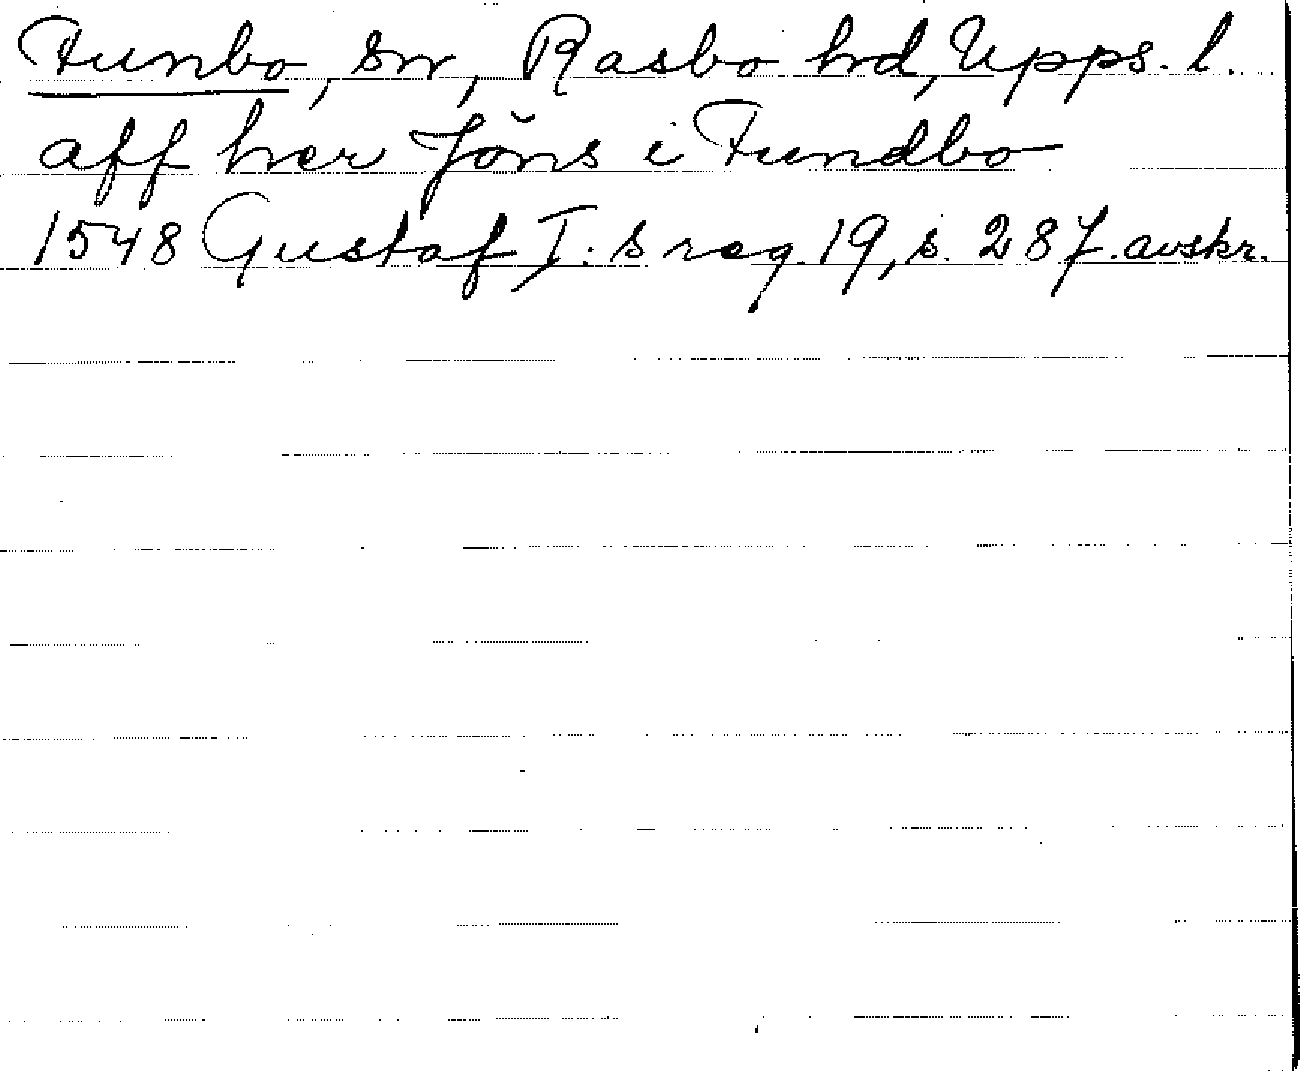 Funbo, sn, Rasbo hd, Upps. l.
aff her Jöns i Fundbo
1548 Gustaf I:s reg. 19, s. 287. avskr.